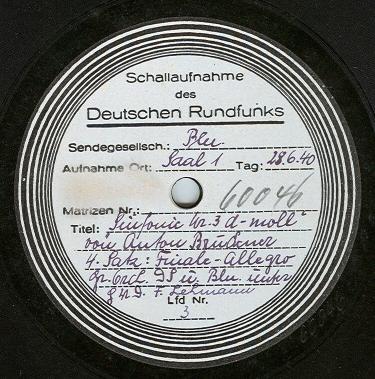 Schallaufnahme
des
Deutschen Rundfunks
Sendegesellsch.: Bln.
Aufnahme Ort: Saal 1 Tag: 28.6.40
Matrizen Nr.: 60046
Titel: "Sinfonie Nr. 3 d-moll"
von Anton Bruckner
4. Satz: Finale-Allegro
Gr. Orch. DS u. Bln. unter
F. Lehmann
Lfd Nr.
3